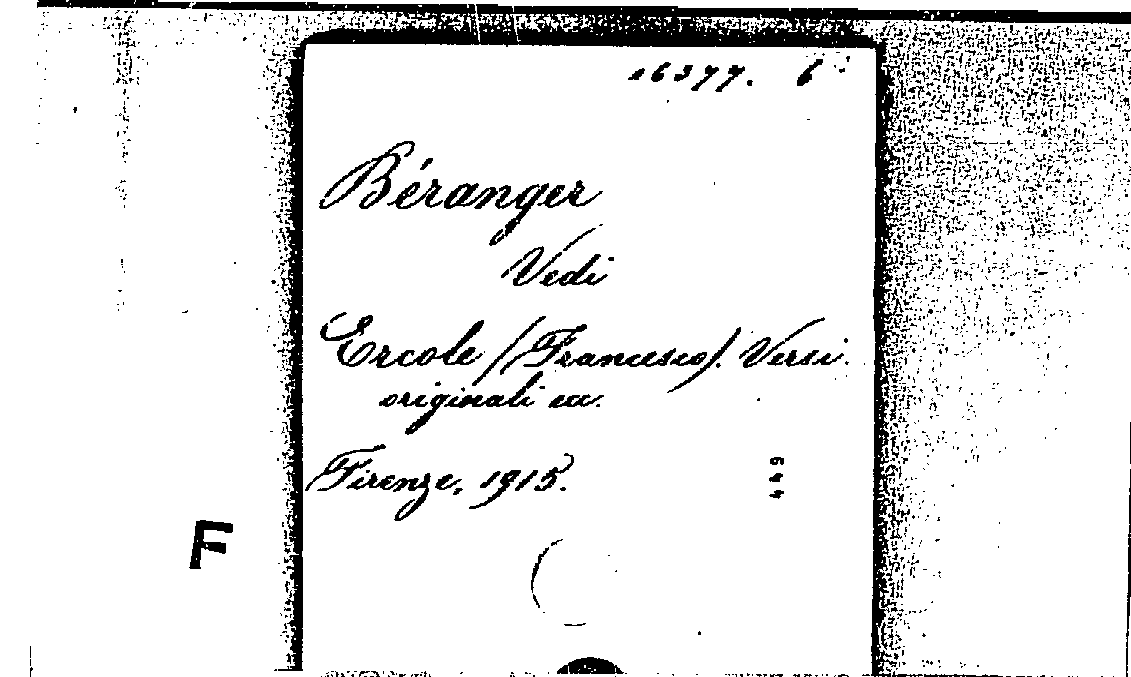 16377. 6
Béranger
Vedi
Ercole (Francesco). Versi
originali ecc.
Firenze, 1915.
449
F